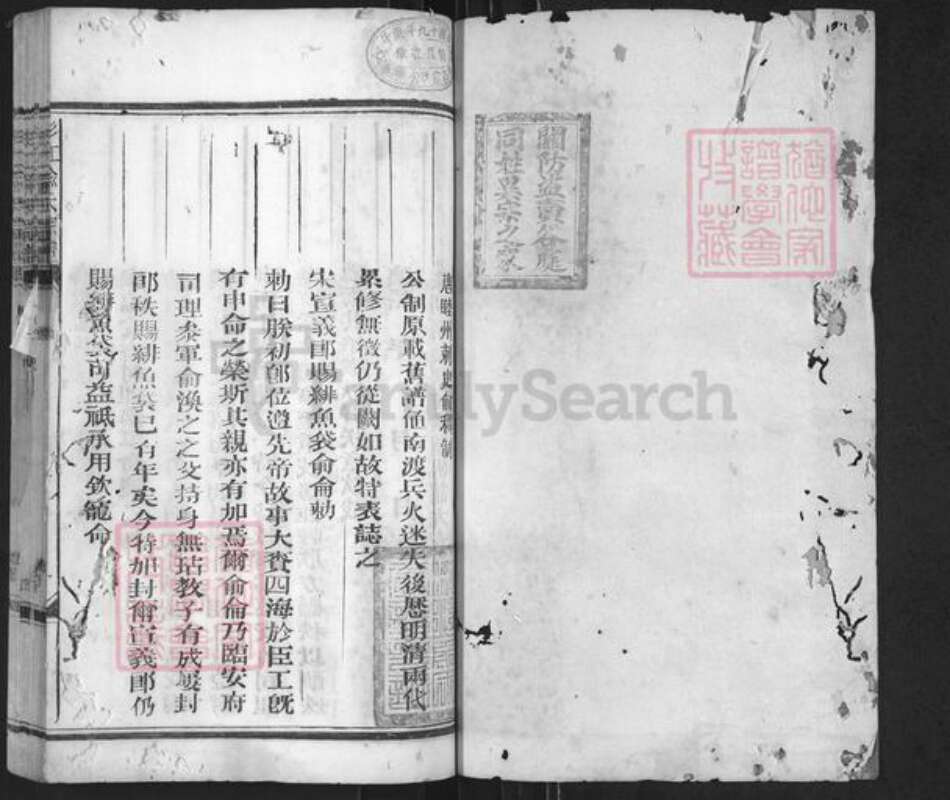 關防盜賣公庭
同姓異宗之家
譜學會
收藏
唐睦州刺史俞稱誥
公制原載舊譜俞南渡兵火迷失後歷明清兩代
累修無徵仍從闕如故特表誌之
宋宣義郎賜緋魚袋俞倫勅
勅曰朕初即位遵先帝故事大賚四海於臣工旣
有申命之榮斯其親亦有加焉爾俞倫乃臨安府
司理叅軍俞渙之之父持身無玷教子有成爰封
郎秩賜緋魚袋已有年矣今特加封爾宣義郎仍
賜緋魚袋可益祇承用欽寵命
FamilySearch